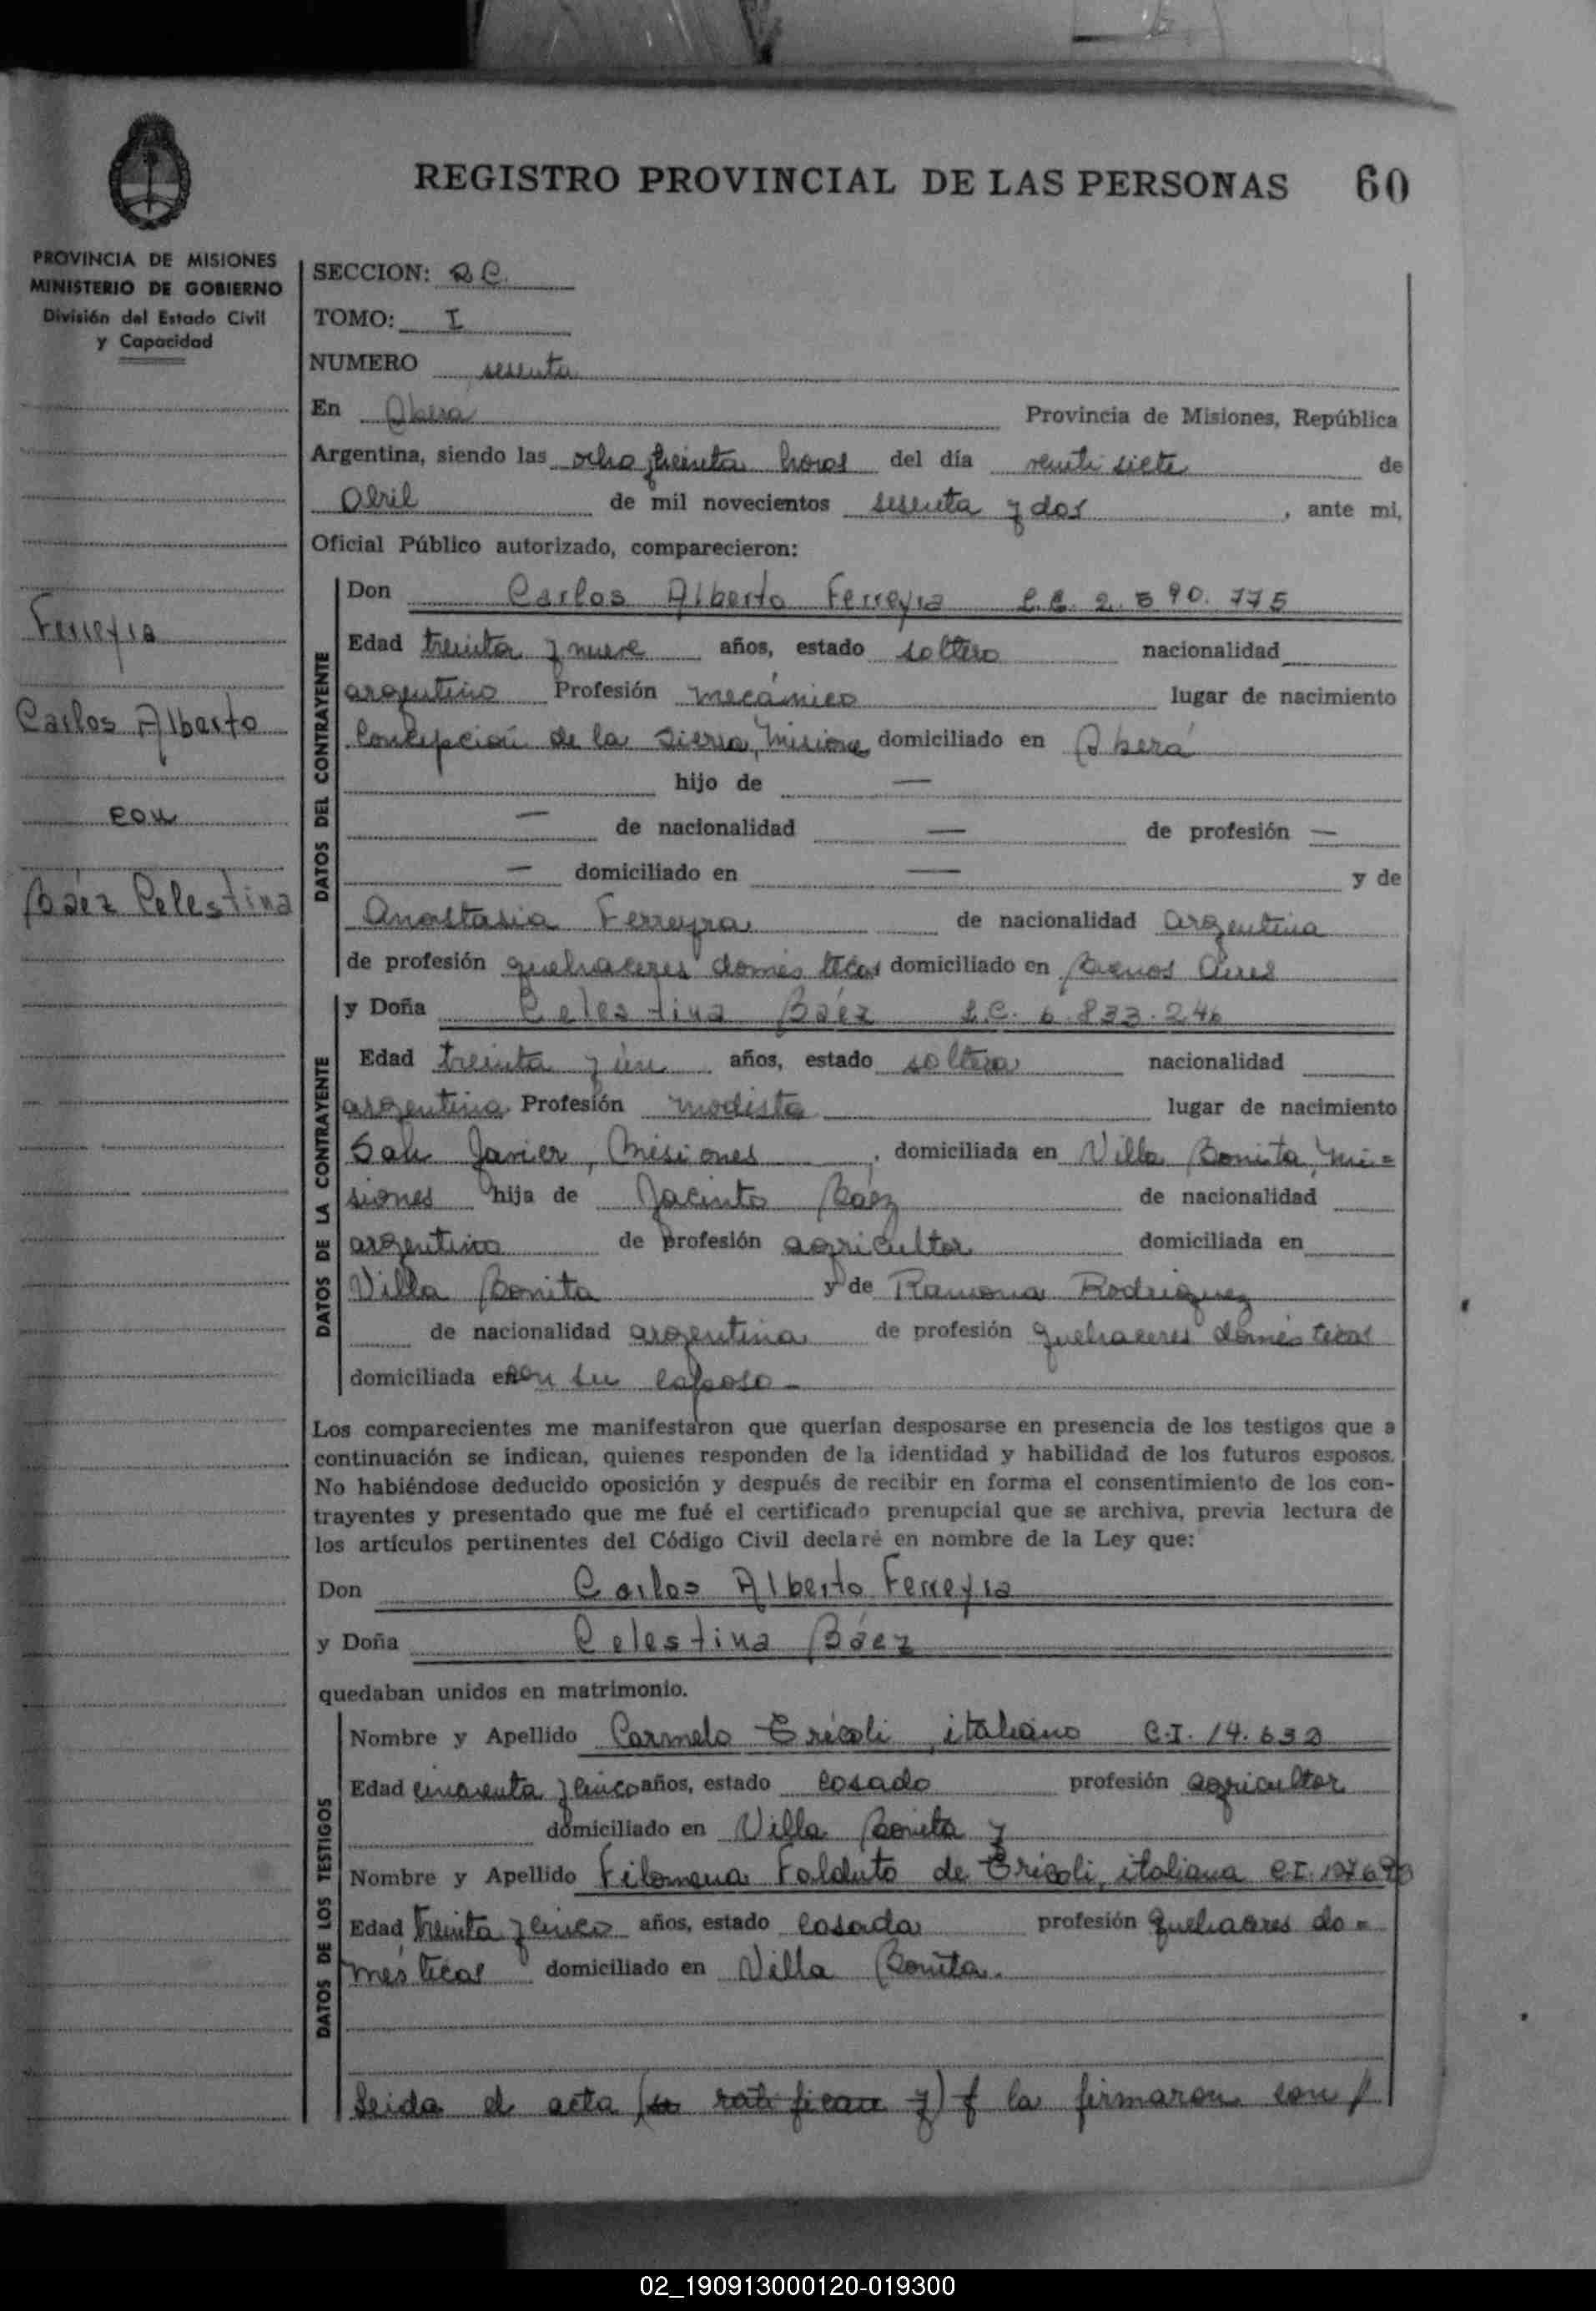 REGISTRO PROVINCIAL DE LAS PERSONAS 60
PROVINCIA DE MISIONES
MINISTERIO DE GOBIERNO
División del Estado Civil
y Capacidad
Ferreyra
Carlos Alberto
con
Báez Celestina
SECCION: R C.
TOMO: I
NUMERO sesenta
En Oberá Provincia de Misiones, República
Argentina, siendo las ocho treinta horas del día veinti siete de
Abril de mil novecientos sesenta y dos, ante mi,
Oficial Público autorizado, comparecieron:
DATOS DEL CONTRAYENTE
Don Carlos Alberto Ferreyra L.E. 2.590.775
Edad treinta y nueve años, estado soltero nacionalidad
argentino Profesión mecánico lugar de nacimiento
Concepción de la Sierra, Misiones domiciliado en Oberá
hijo de —
— de nacionalidad — de profesión —
— domiciliado en — y de
Anastasia Ferreyra de nacionalidad argentina
de profesión quehaceres domésticos domiciliado en Buenos Aires
DATOS DE LA CONTRAYENTE
y Doña Celestina Báez L.C. 6.833.246
Edad treinta y un años, estado soltera nacionalidad
argentina Profesión modista lugar de nacimiento
San Javier, Misiones, domiciliada en Villa Bonita, Mi=
siones hija de Jacinto Báez de nacionalidad
argentino de profesión agricultor domiciliada en
Villa Bonita y de Ramona Rodriguez
de nacionalidad argentina de profesión quehaceres domésticos
domiciliada en con su esposo -
Los comparecientes me manifestaron que querían desposarse en presencia de los testigos que a
continuación se indican, quienes responden de la identidad y habilidad de los futuros esposos.
No habiéndose deducido oposición y después de recibir en forma el consentimiento de los con-
trayentes y presentado que me fué el certificado prenupcial que se archiva, previa lectura de
los artículos pertinentes del Código Civil declaré en nombre de la Ley que:
Don Carlos Alberto Ferreyra
y Doña Celestina Báez
quedaban unidos en matrimonio.
DATOS DE LOS TESTIGOS
Nombre y Apellido Carmelo Ericoli, italiano C.I. 14.632
Edad cincuenta y cinco años, estado casado profesión agricultor
domiciliado en Villa Bonita y
Nombre y Apellido Filomena Falduto de Ericoli, italiana C.I.
Edad treinta y cinco años, estado casada profesión quehaceres do=
mésticos domiciliado en Villa Bonita.
Leida el acta (se ratifican y) la firmaron con
02_190913000120-019300